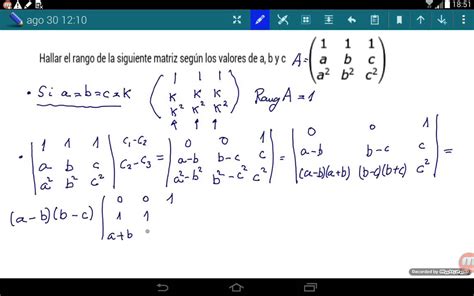 18:51
ago 30 12:10
Hallar el rango de la siguiente matriz según los valores de a, b y c A = ( 1 1 1
a b c
a² b² c² )
• Si a=b=c=K ( 1 1 1
K K K
K² K² K² ) Rang A = 1
• | 1 1 1
a b c
a² b² c² | C₁-C₂
C₂-C₃ = | 0 0 1
a-b b-c c
a²-b² b²-c² c² | = | 0 0 1
a-b b-c c
(a-b)(a+b) (b-c)(b+c) c² | =
(a-b)(b-c) | 0 0 1
1 1
a+b
Recorded by